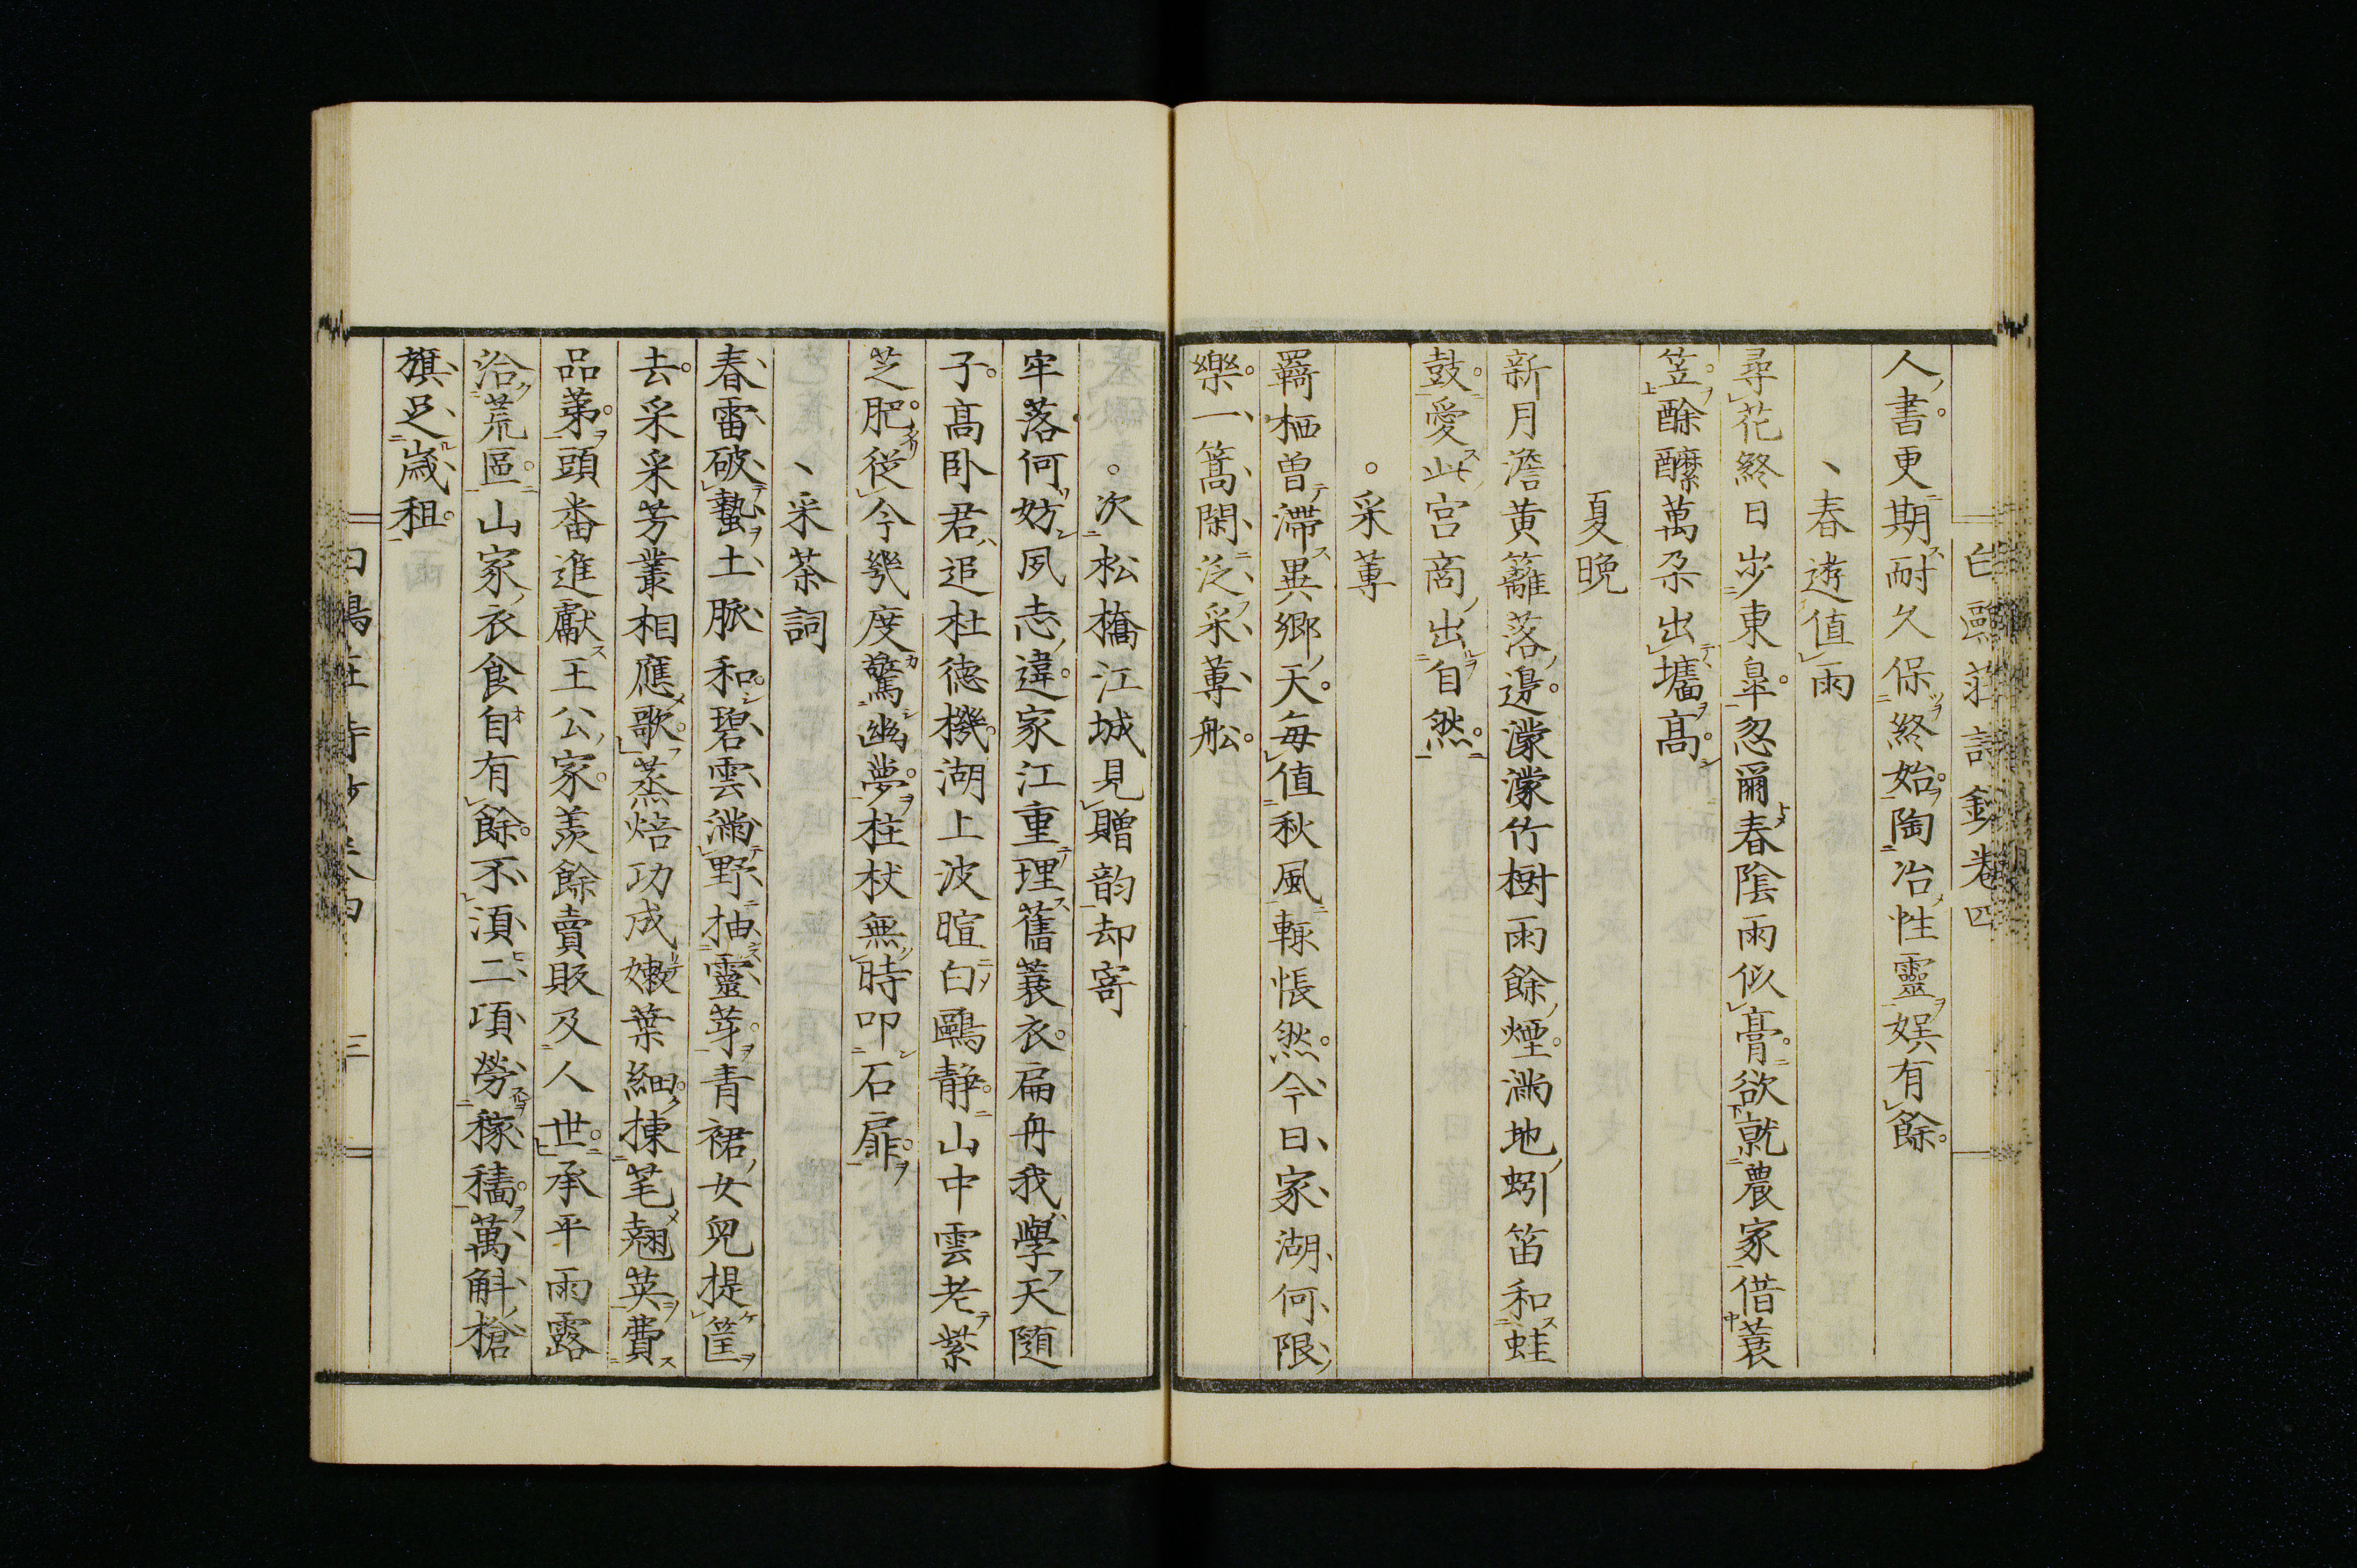 白鷗莊詩鈔卷四
人書更期耐久保終始陶冶性靈娯有餘
春遊值雨
尋花終日步東皐忽爾春陰雨似膏欲就農家借蓑
笠酴醾萬朶出墻髙
夏晩
新月澹黄籬落邊濛濛竹樹雨餘煙滿地蚓笛和蛙
鼓愛此宫商出自然
采蓴
羇栖曽滯異鄉天每値秋風輙悵然今日家湖何限
樂一篙閑泛采蓴船
次松橋江城見贈韵却寄
牢落何妨夙志違家江重理舊蓑衣扁舟我學天隨
子高卧君追杜德機湖上波暄白鷗静山中雲老紫
芝肥從今幾度驚幽夢柱杖無時叩石扉
采茶詞
春雷破蟄土脈和碧雲滿野抽靈芽青裙女兒提筐
去采采芳叢相應歌蒸焙功成嫩葉細揀芼翹英費
品苐頭番進獻王公家羨餘賣販及人世承平雨露
洽荒區山家衣食自有餘不湏二項勞稼穡萬斛槍
旗足歳租